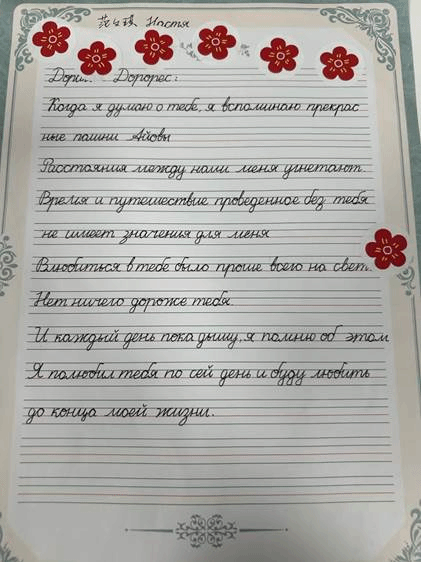 Настя
Дорорес:
Когда я думаю о тебе, я вспоминаю прекрас
ные Айовы
Расстояния между нами меня угнетают.
Время и путешествие проведенное без тебя
не имеет значения для меня
Влюбиться в тебе было проше всего на свет
Нет ничего дороже тебя.
И каждый день пока дышу, я помню об этом
Я полюбил тебя по сей день и буду любить
до конца моей жизни.